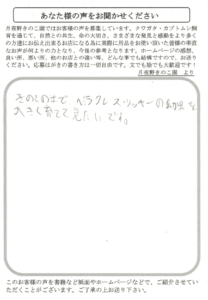 あなた様の声をお聞かせください
月夜野きのこ園ではお客様の声を募集しています。クワガタ・カブトムシ飼
育を通じて、自然との共生、命の大切さ、さまざまな発見と感動をより多く
の方達にお伝え出来るお店になる為に実際に用品をお使い頂いた皆様の率直
なお声が何よりの力となり、今後の参考となります。ホームページの感想、
良い所、悪い所、他のお店との違い等、どんな事でも結構ですので、お送り
ください。応募はがきの書き方は一切自由です。文でも絵でも大歓迎です！
月夜野きのこ園 より
きのこのおで ヘラクレスリッキーの幼虫を
大きく育てて見たいです。
このお客様の声を書籍など紙面やホームページなどで、ご紹介させてい
ただくことがございます。ご了承の上お送り下さい。